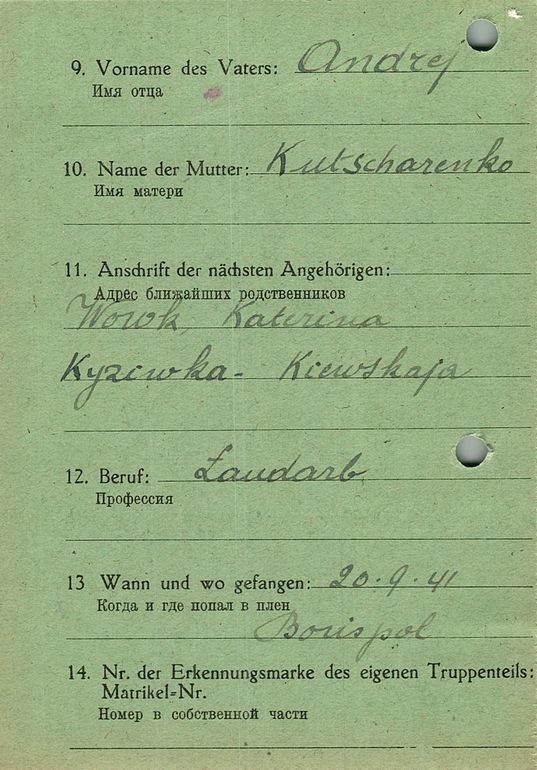 9. Vorname des Vaters: Andrej
Имя отца
10. Name der Mutter: Kutscharenko
Имя матери
11. Anschrift der nächsten Angehörigen:
Адрес ближайших родственников
Wowk, Katerina
Kyziwka - Kiewskaja
12. Beruf: Landarb.
Профессия
13 Wann und wo gefangen: 20.9.41
Когда и где попал в плен
Borispol
14. Nr. der Erkennungsmarke des eigenen Truppenteils:
Matrikel=Nr.
Номер в собственной части